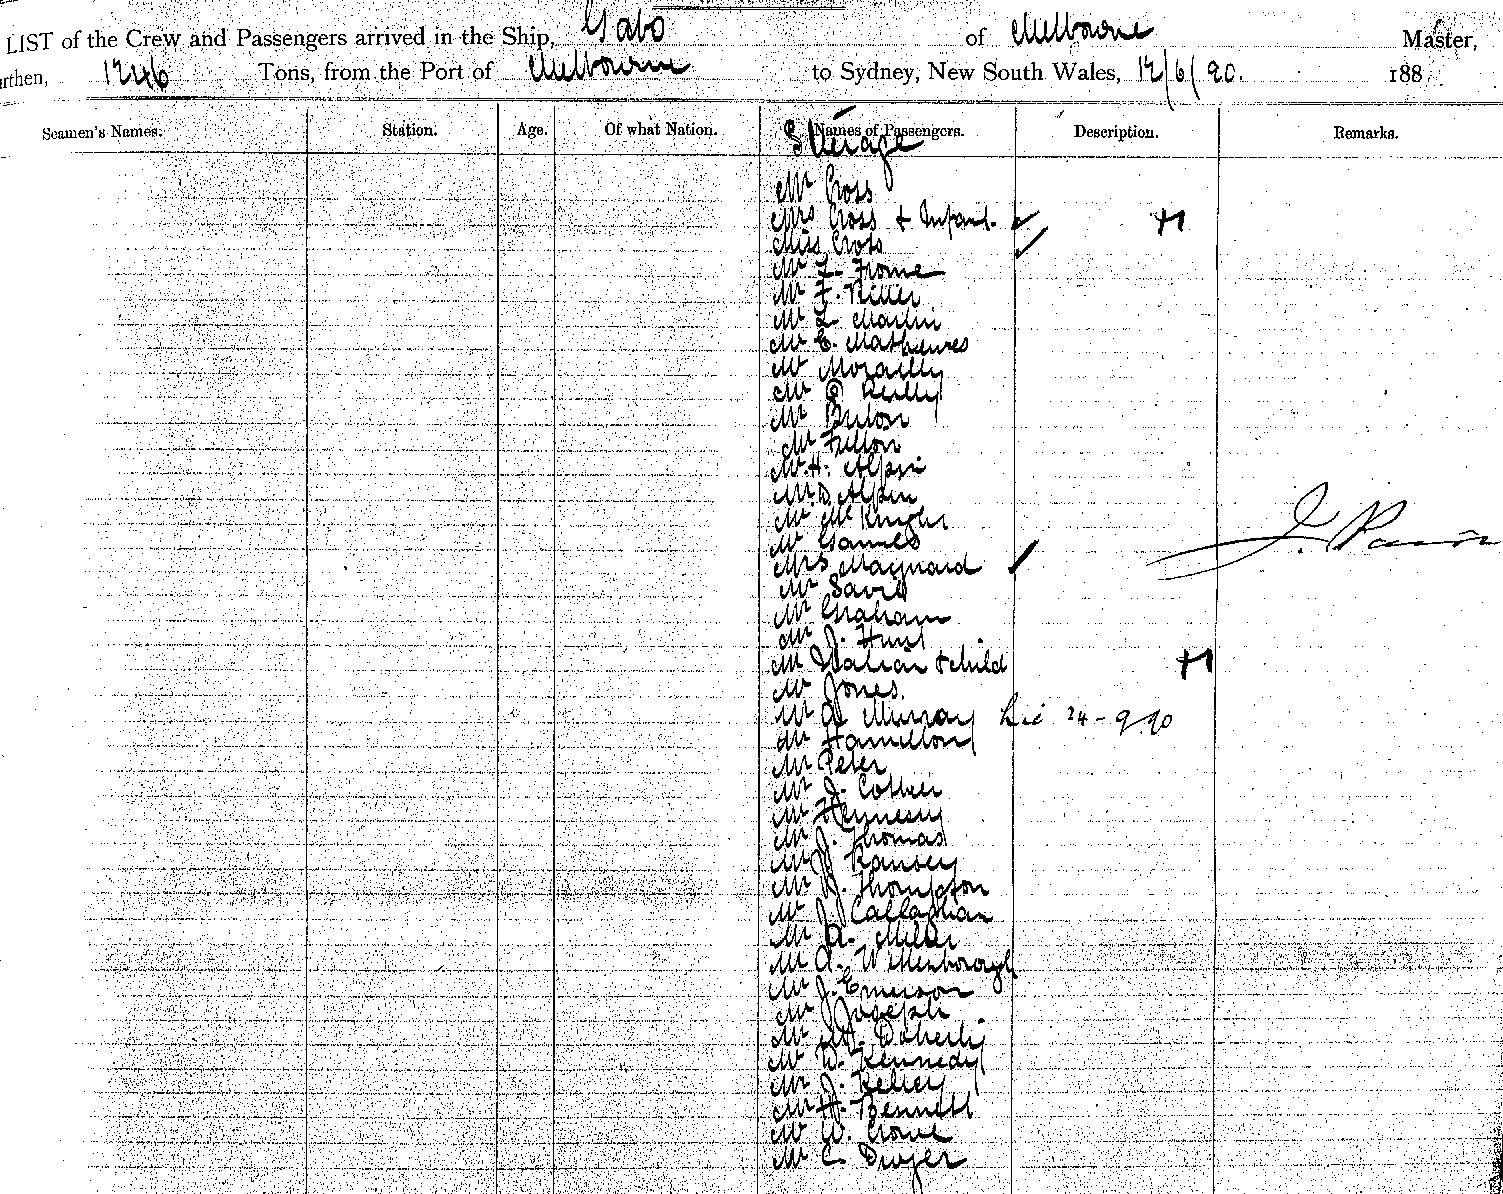 LIST of the Crew and Passengers arrived in the Ship, Gabo of Melbourne Master,
rthen, 1246 Tons, from the Port of Melbourne to Sydney, New South Wales, 12/6/90. 188
Seamen's Names. Station. Age. Of what Nation. Names of Passengers. Description. Remarks.
Steerage
Mr Cross
Mrs Cross + Infant.
Miss Cross
Mr F. Frome
Mr F.
Mr L. Martin
Mr C. Mathewes
Mr
Mr Reilly
Mr
Mr Fulton
Mr H. Alpin
Mr D. Alpin
Mr McKnight
Mr
Mrs Maynard
Mr
Mr Graham
Mr J. Hunt
Mr + child
Mr Jones.
Mr Murray 24-9-90
Mr Hamilton
Mr Peter
Mr J.
Mr Hennessy
Mr J. Thomas
Mr J. Ramsey
Mr Thompson
Mr J. Callaghan
Mr A. Miller
Mr A. Wittenborough
Mr J. Emerson
Mr J. Joseph
Mr Doherty
Mr W. Kennedy
Mr J. Kelley
Mr H. Bennett
Mr W. Crowe
Mr C. Dwyer